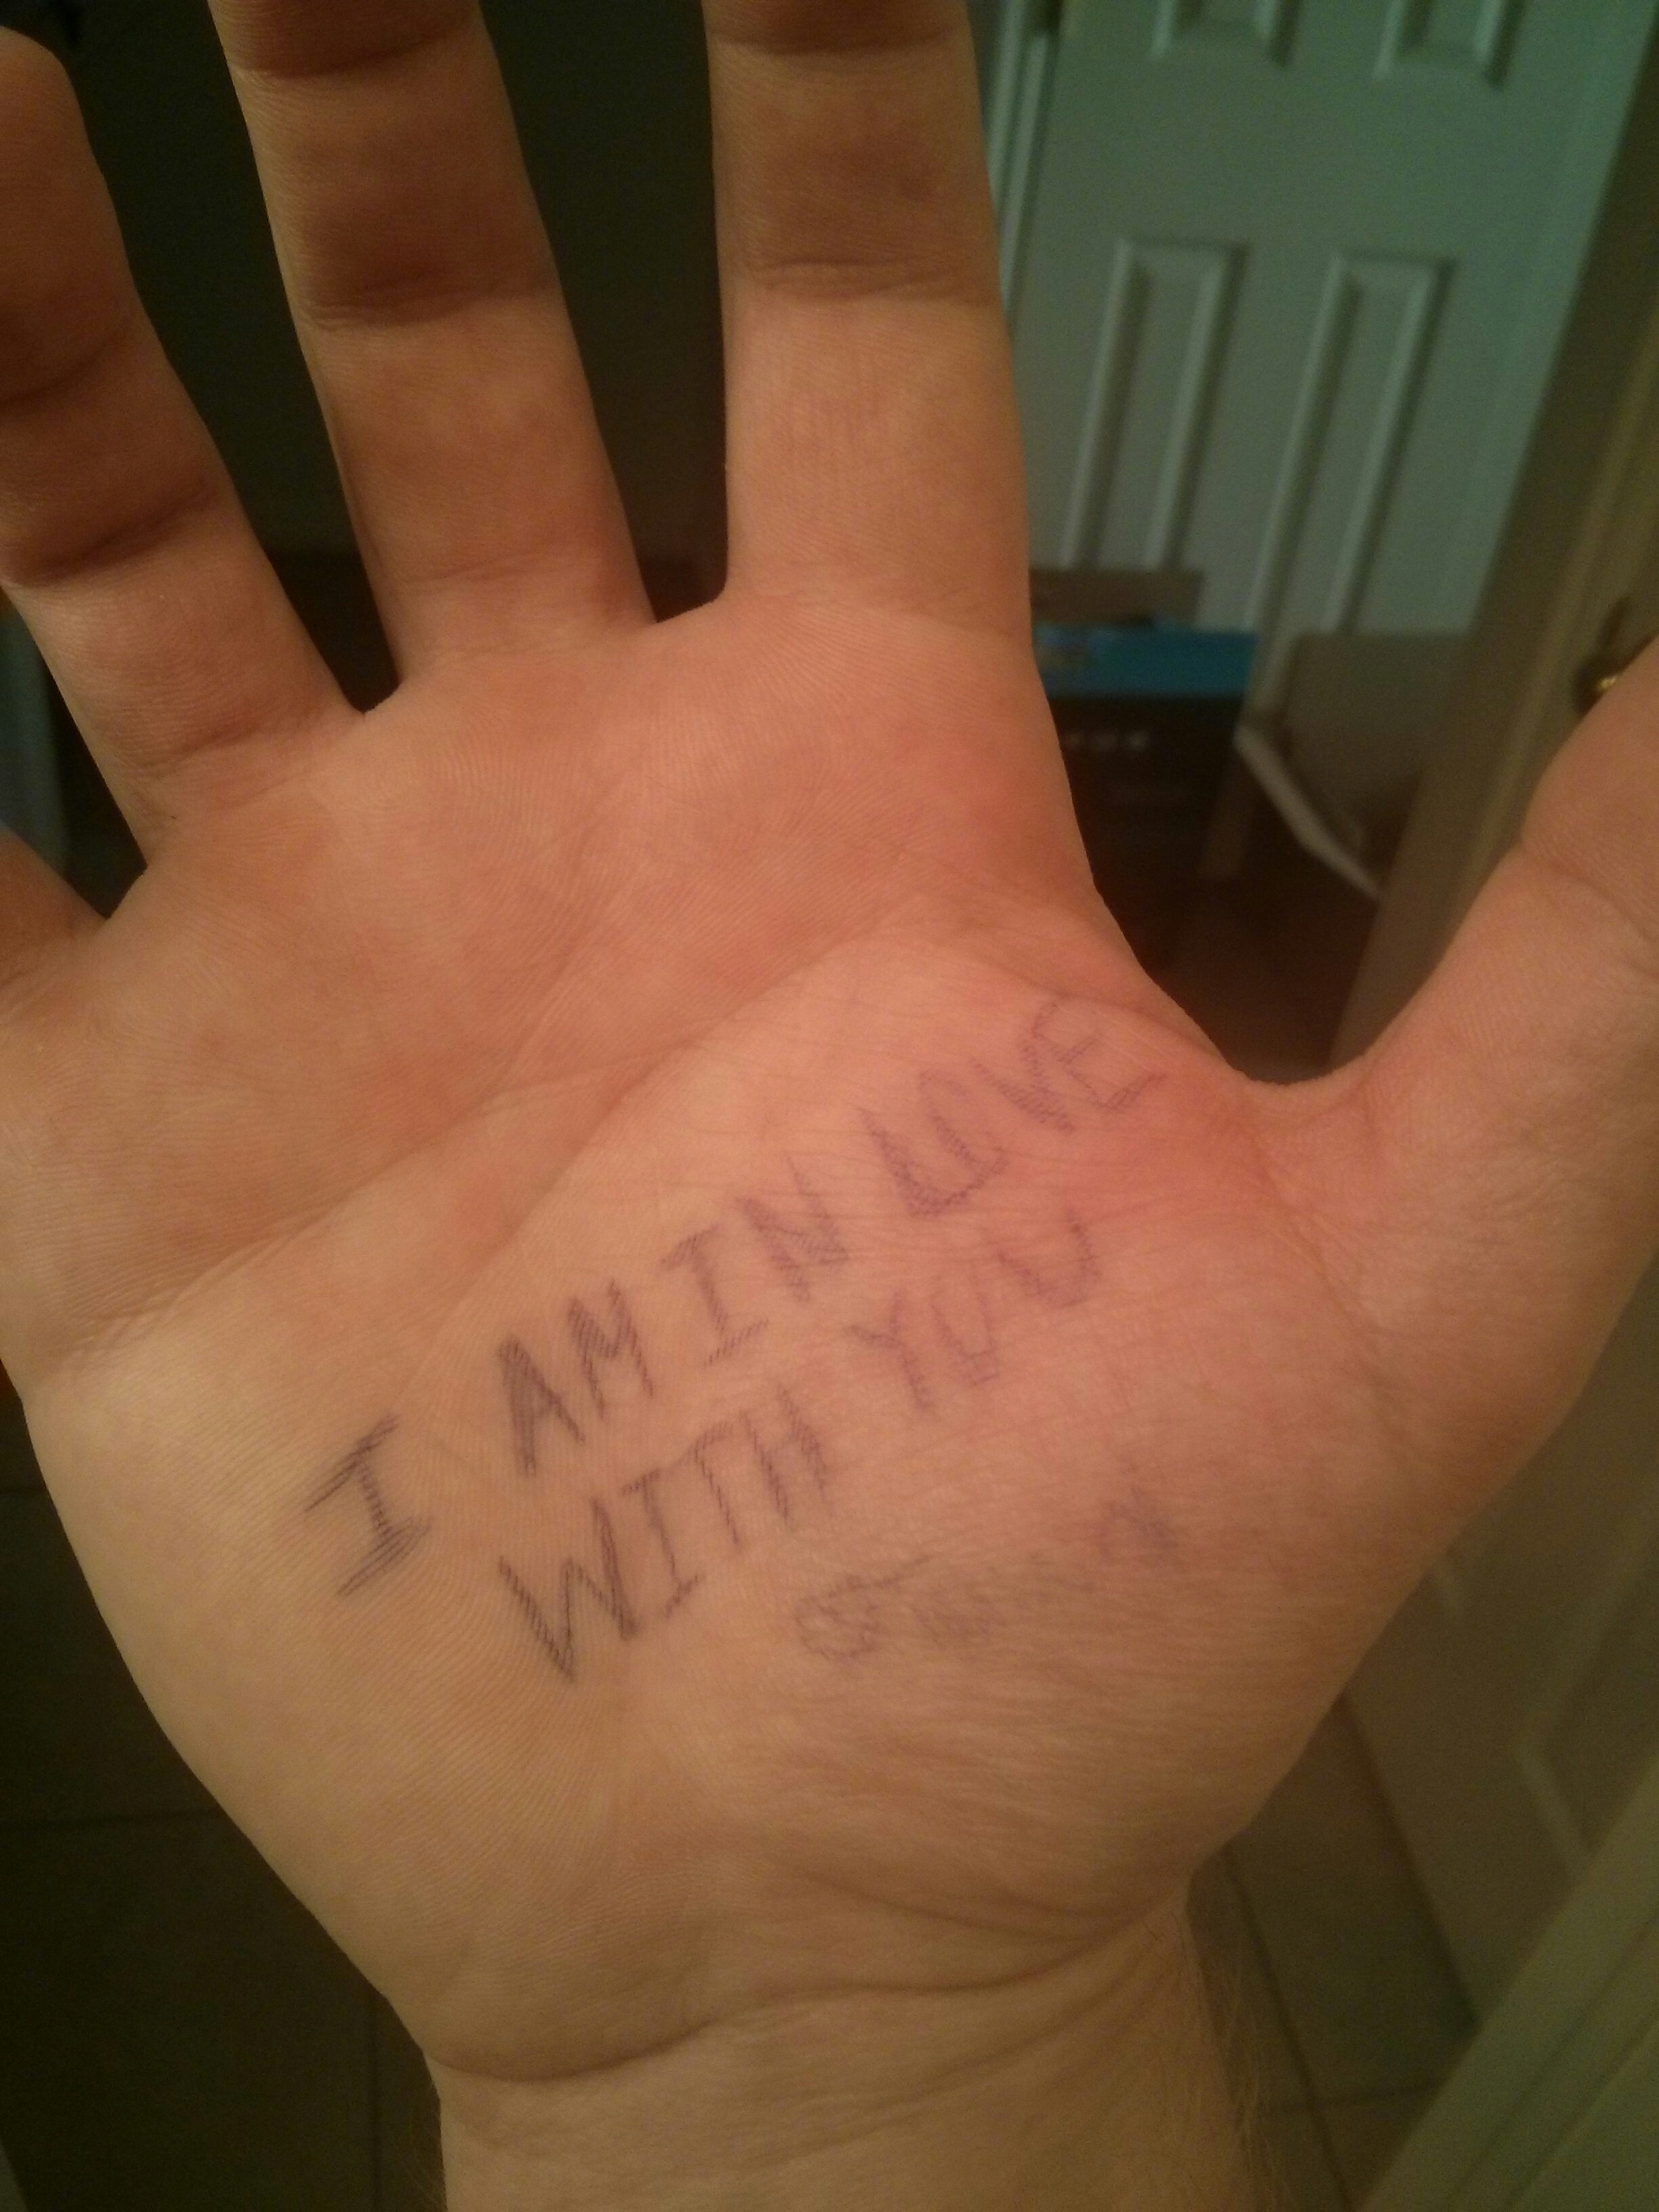 I AM IN LOVE
WITH YOU